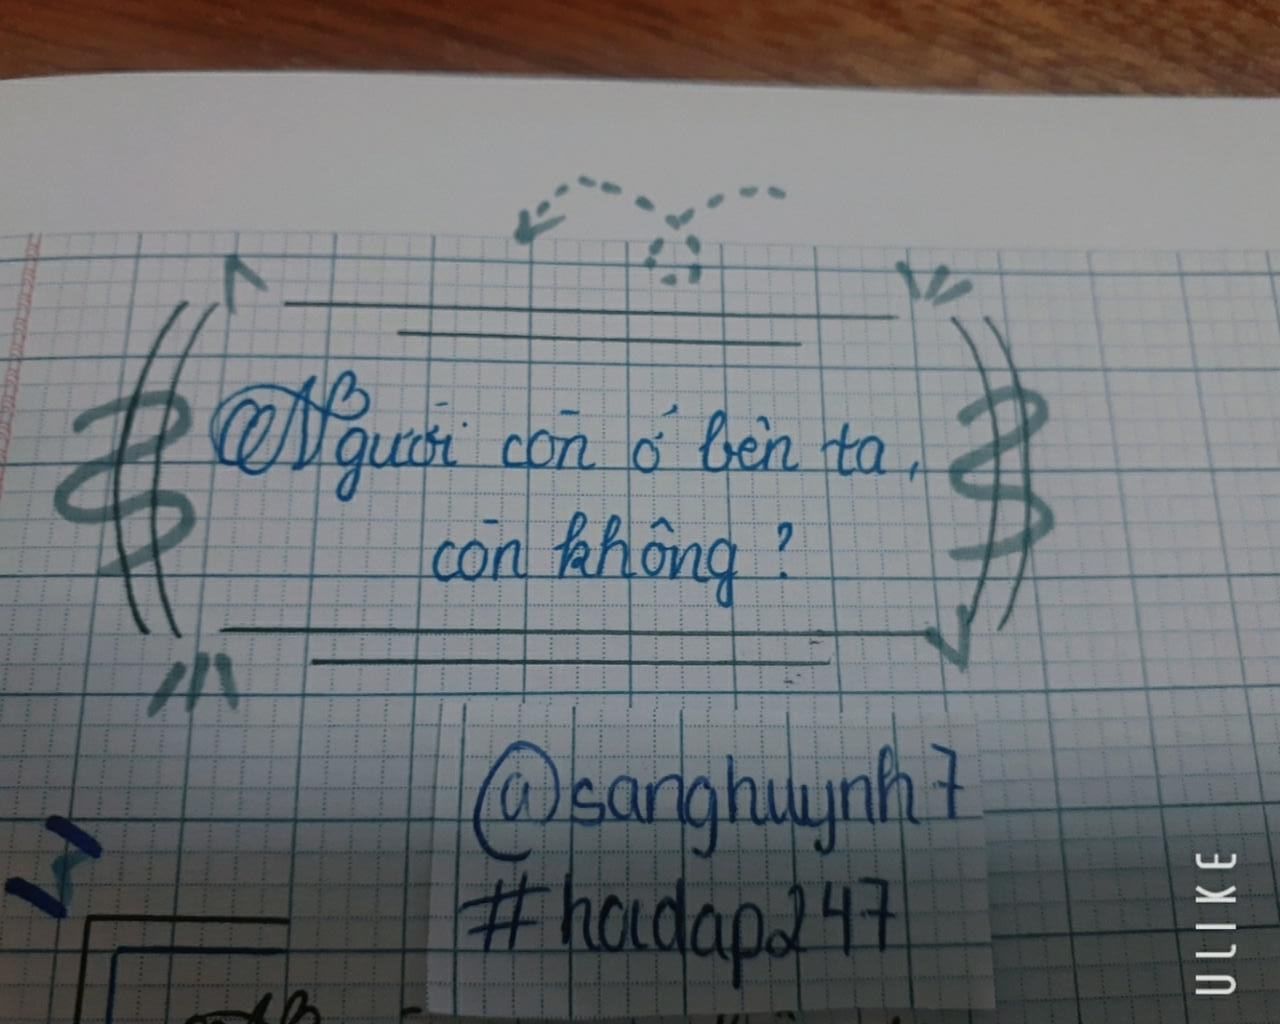 Người còn ở bên ta,
còn không ?
@sanghuynh7
#hoidap247
ULIKE